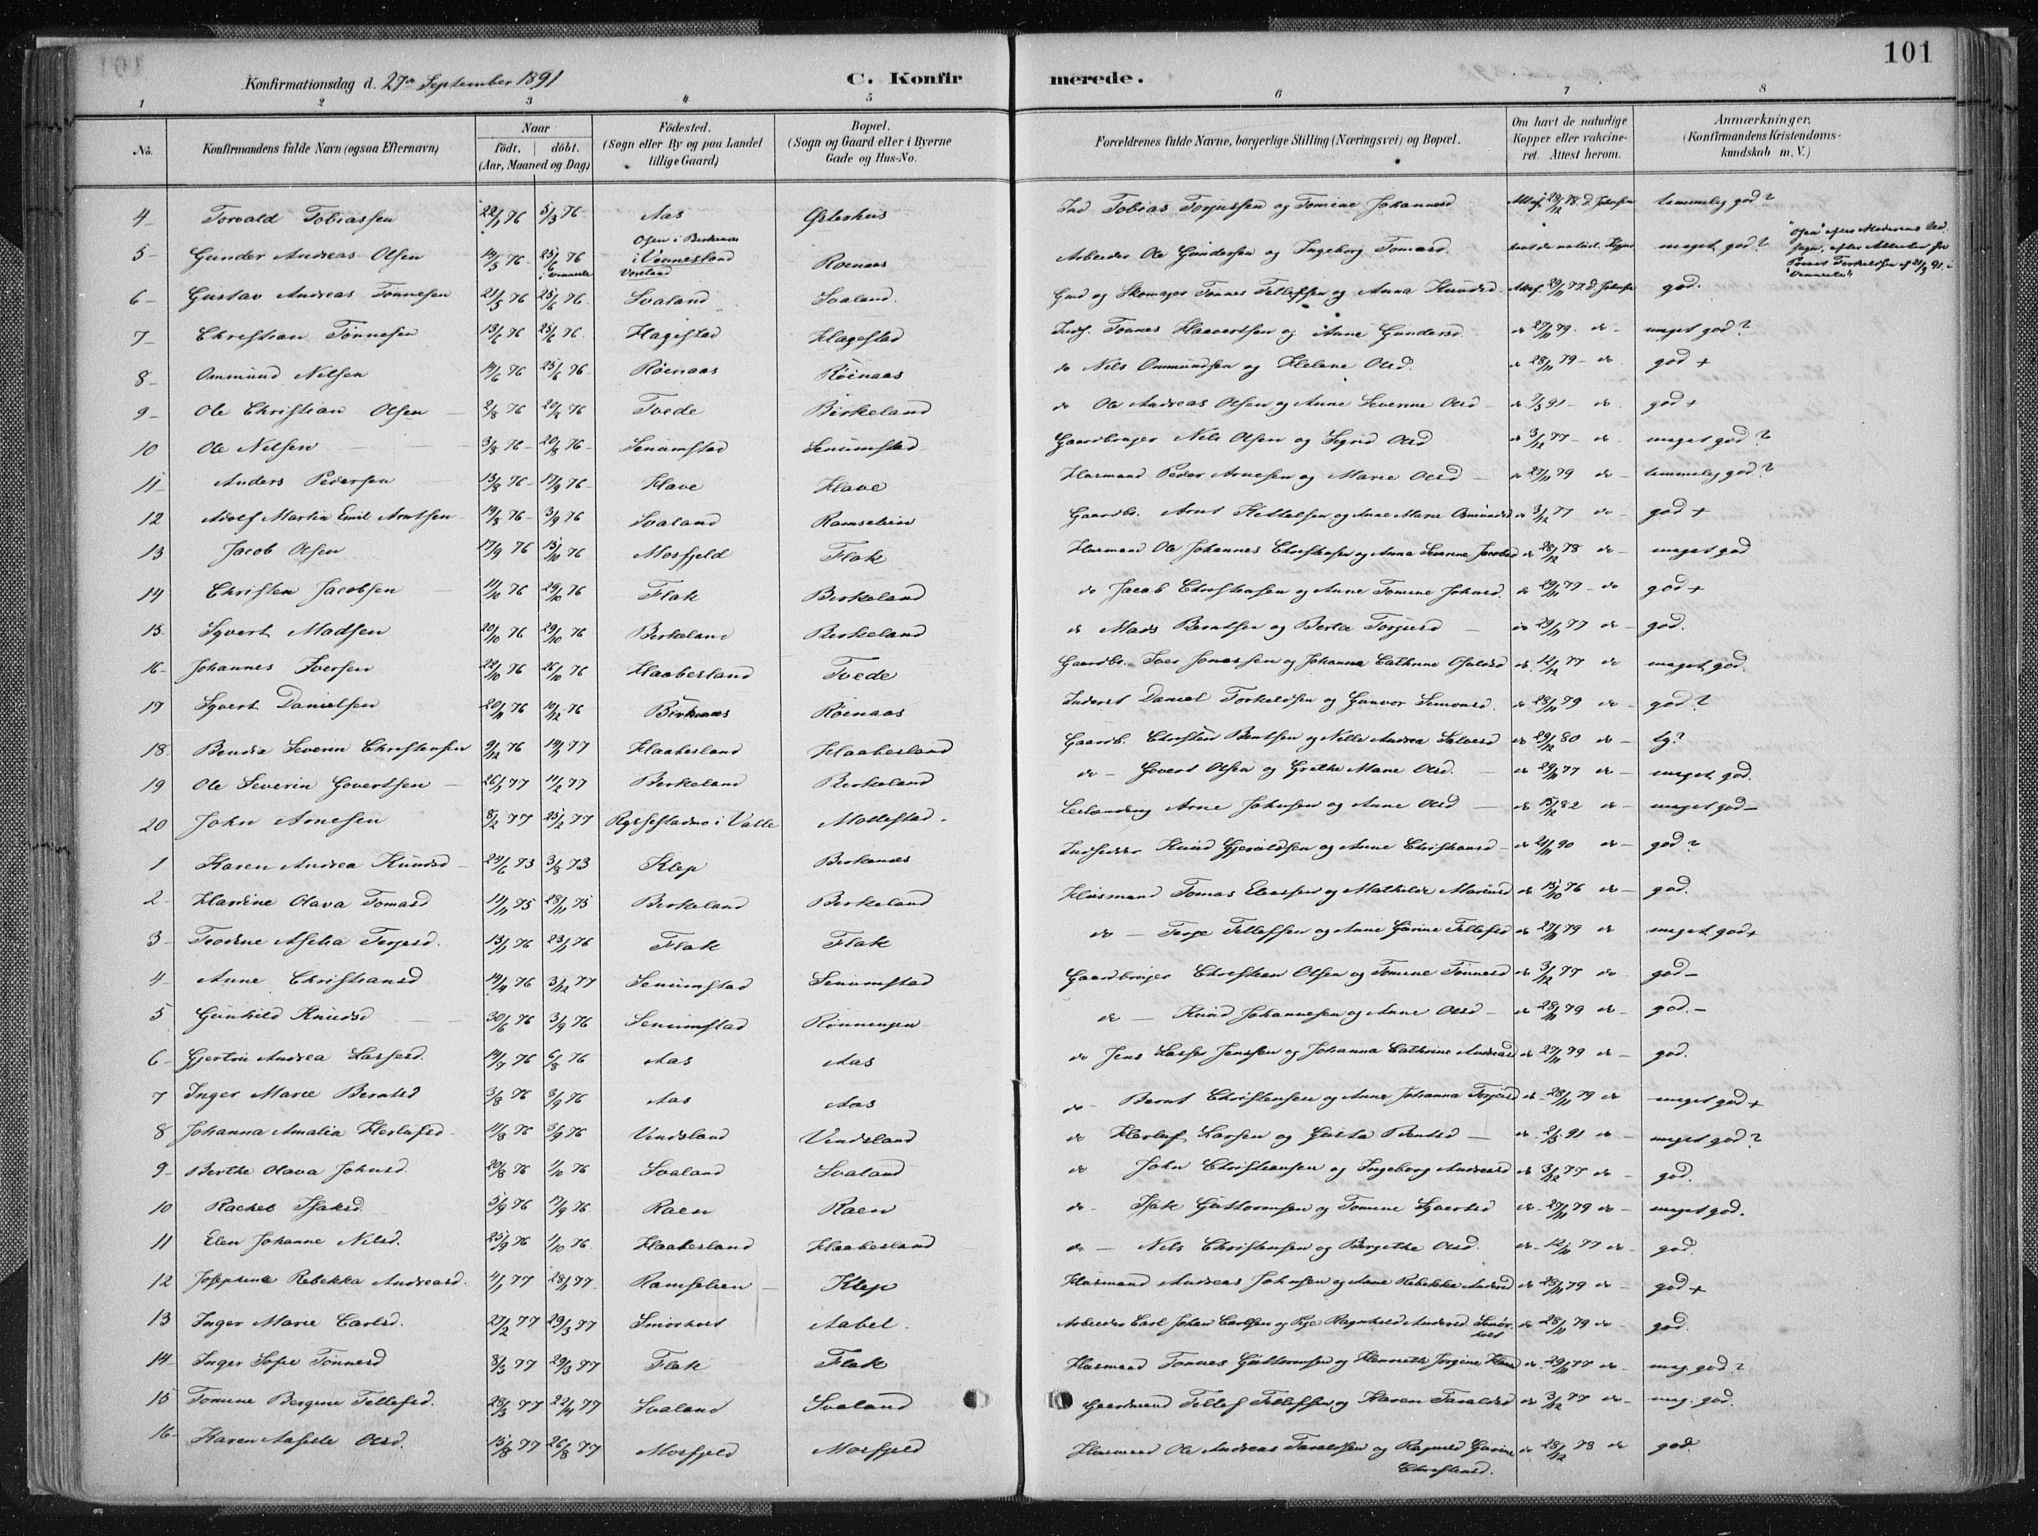 101
Konfirmationsdag d. 27de September 1891
C. Konfirmerede.
1 2 3 4 5 6 7 8
No. Konfirmandens fulde Navn (ogsaa Efternavn) Naar født. døbt. (Aar, Maaned og Dag) Fødested. (Sogn eller By og paa Landet tillige Gaard) Bopæl. (Sogn og Gaard eller i Byerne Gade og Hus-No. Forældrenes fulde Navne, borgerlige Stilling (Næringsvei) og Bopæl. Om havt de naturlige Kopper eller vakcineret. Attest herom. Anmærkninger. (Konfirmandens Kristendomskundskab m. V.)
4 Torvald Tobiassen 22/1 76 5/3 76 Aas Østerhus Ind Tobias Torjussen og Tomine Johannesd Attest 29/12 78 d. Johnsen temmelig god?
5 Gunder Andreas Olsen 14/5 76 25/6 76 i Vennesla Osen i Birkenæs i Vinnesland Roenaas Arbeider Ole Gundersen og Ingeborg Tomasd. meget god?
6 Gustav Andreas Tønnesen 21/5 76 25/6 76. Svaland Svaland. Gmd og Skomager Tønnes Tellefsen og Anna Knudsd Attest 29/11 77 d. Johnsen god.
7 Christian Tønnesen 13/6 76 25/6 76. Hagestad Hagestad Inds. Tønnes Haavertsen og Anne Gundersd. do 27/11 79. do meget god?
8 Ommund Nilsen 14/6 76 25/6 76 Röenaas Röenaas do Nils Ommundsen og Helene Olsd. do 28/11 79 do god +
9 Ole Christian Olsen 2/8 76 20/8 76 Tvede Birkeland do Ole Andreas Olsen og Anne Severine Olsd do 7/5 91 do god +
10 Ole Nilsen 3/8 76 20/8 76 Senumstad Senumstad Gaardbruger Nils Olsen og Sigrid Olsd do 3/12 77 do meget god?
11 Anders Pedersen 13/8 76 17/9 76 Klave Klave Husmand Peder Arnesen og Marie Olsd do 27/11 79 do temmelig god?
12 Adolf Martin Emil Arntsen 19/8 76 3/9 76 Svaland Ramseleien Gaardbr. Arnt Kittelsen og Anne Marie Osmundsd do 3/12 77 do god +
13 Jacob Olsen 17/9 76 15/10 76 Mosfjeld Flak Husmand Ole Johannes Christensen og Anna Severine Jacobsd do 28/12 78 do meget god
14 Christen Jacobsen 11/10 76 29/10 76 Flak Birkeland do Jacob Christensen og Anne Tomine Johnsd. do 29/11 77 do god +
15 Syvert Madsen 20/10 76 29/10 76 Birkeland Birkeland do Mads Berntsen og Berta Torjusd do 29/11 77 do god.
16 Johannes Iversen 22/10 76 26/10 76 Haabesland Tvede Gaardbr. Iver Jonassen og Johanna Cathrine do 12/12 77 do meget god.
17 Syvert Danielsen 20/11 76 14/12 76 Birkenaas Röenaas Inderst Daniel Torkeldsen og Gunvor Simonsd. do 28/11 79 do god?
18 Bendix Severin Christensen 9/12 76 14/1 77 Haabesland Haabesland Gaardb. Christen Bentsen og Nille Andrea Salvesd do 29/12 80 do tg?
19 Ole Severin Govertsen 26/1 77 11/2 77 Birkeland Birkeland do Govert Olsen og Grethe Marie Olsd. do 29/11 77 do meget god.
20 John Arnesen 8/2 77 25/2 77 Rysstadmo i Valle Mollestad Leilænding Arne Johnsen og Anne Olsd do 15/11 82 do meget god
1 Karen Andrea Knudsd 24/6 73 3/8 73 Klep Birkenæs Indsidder Knud Gjeruldsen og Anne Christiansd do 21/11 90 do god?
2 Hansine Olava Tomasd 14/11 75 28/11 75 Birkeland Birkeland Husmand Tomas Eliassen og Mathilde Mariusd do 15/10 76 do god.
3 Teodine Aselia Terjesd. 13/1 76 23/1 76 Flak Flak do Terje Tellefsen og Anne Gurine Tellefsd do 27/11 79 do meget god +
4 Anne Christiansd 19/11 76 3/12 77 Senumstad Senumstad Gaardbruger Christian Olsen og Tomine Tønnesd do 3/12 77 do god
5 Gunhild Knudsd 30/6 76 3/9 76 Senumstad Rönningen do Knud Johannesen og Anne Olsd do 28/11 79 do god.
6 Gjertrue Andrea Larsesd. 19/7 76 6/8 76 Aas Aas do Jens Lasse Jenssen og Johanna Cathrine Andreasd do 27/11 79 do god.
7 Inger Marie Berntsd 3/8 76 3/9 76 Aas Aas do Bernt Christensen og Anne Johanna Torjusd do 28/11 79 do meget god +
8 Johanna Amalia Herlofsd 11/8 76 3/9 76 Vindsland Vindsland do Herlof Larsen og Gusta Berntsd do 2/5 91 do meget god?
9 Berthe Olava Johnsd. 20/8 76 1/10 76 Svaland Svaland do John Christiansen og Ingeborg Andreasd do 3/12 77 do god.
10 Rachel Isaksd. 5/9 76 17/9 76 Raen Raen do Isak Guttormsen og Tomine Syvertsd do 27/11 79 do meget god.
11 Elen Johanne Nilsd. 25/9 76 1/10 76. Haabesland Haabesland do Nils Christensen og Bergithe Olsd. do 12/11 77 do god.
12 Josephine Rebekka Andreasd. 4/1 77 28/1 77 Ramseleien Klep Husmand Andreas Johnsen og Anne Rebekka Andersd do 28/11 79 do god +
13 Inger Marie Carlsd. 27/2 77 29/3 77 Smörhoel Aabel. Arbeider Carl Johan Carlsen og Ragnhild Andersd. do 28/11 79 do god.
14 Inger Sofie Tønnesd 8/3 77 29/3 77 Flak Flak Husmand Tønnes Guttormsen og Henriette Jorgine do 29/11 77 do meg. god?
15 Tomine Bergine Tellefsd. 28/3 77 22/4 77 Svaland Svaland Gaardmand Tellef Tellefsen og Karen Taraldsd do 3/12 77 do meg. god.
16 Karen Aaselle Olsd. 15/8 77 26/8 77 Mosfjeld Mosfjeld Husmand Ole Andreas Taraldsen og Ragnild Gurine Christensd. do 28/12 78 do god.